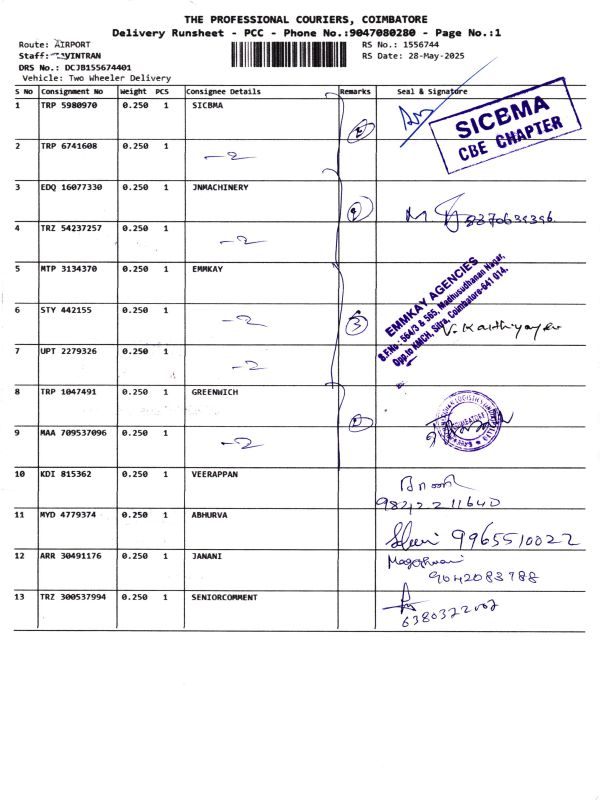 THE PROFESSIONAL COURIERS, COIMBATORE
Delivery Runsheet - PCC - Phone No.:9047080280 - Page No.:1
Route: AIRPORT
RS No.: 1556744
Staff: VINTRAN
RS Date: 28-May-2025
DRS No.: DCJB155674401
Vehicle: Two Wheeler Delivery
S No Consignment No Weight PCS Consignee Details Remarks Seal & Signature
1 TRP 5980970 0.250 1 SICBMA 2
SICBMA
CBE CHAPTER
2 TRP 6741608 0.250 1 -2
3 EDQ 16077330 0.250 1 JNMACHINERY
4 TRZ 54237257 0.250 1 -2
5 MTP 3134370 0.250 1 EMMKAY
EMMKAY AGENCIES
S.F.No: 564/3 & 565, Madhusudhanan Nagar,
Opp.to KMCH, Sitra, Coimbatore-641 014.
6 STY 442155 0.250 1 -2 3
V. Karthiyayeu
7 UPT 2279326 0.250 1 -2
8 TRP 1047491 0.250 1 GREENWICH 2
COIMBATORE
9 MAA 709537096 0.250 1 -2
10 KDI 815362 0.250 1 VEERAPPAN
11 MYD 4779374 0.250 1 ABHURVA
9965510022
12 ARR 30491176 0.250 1 JANANI
Mageshwari
9042083788
13 TRZ 300537994 0.250 1 SENIORCOMMENT
6380322002